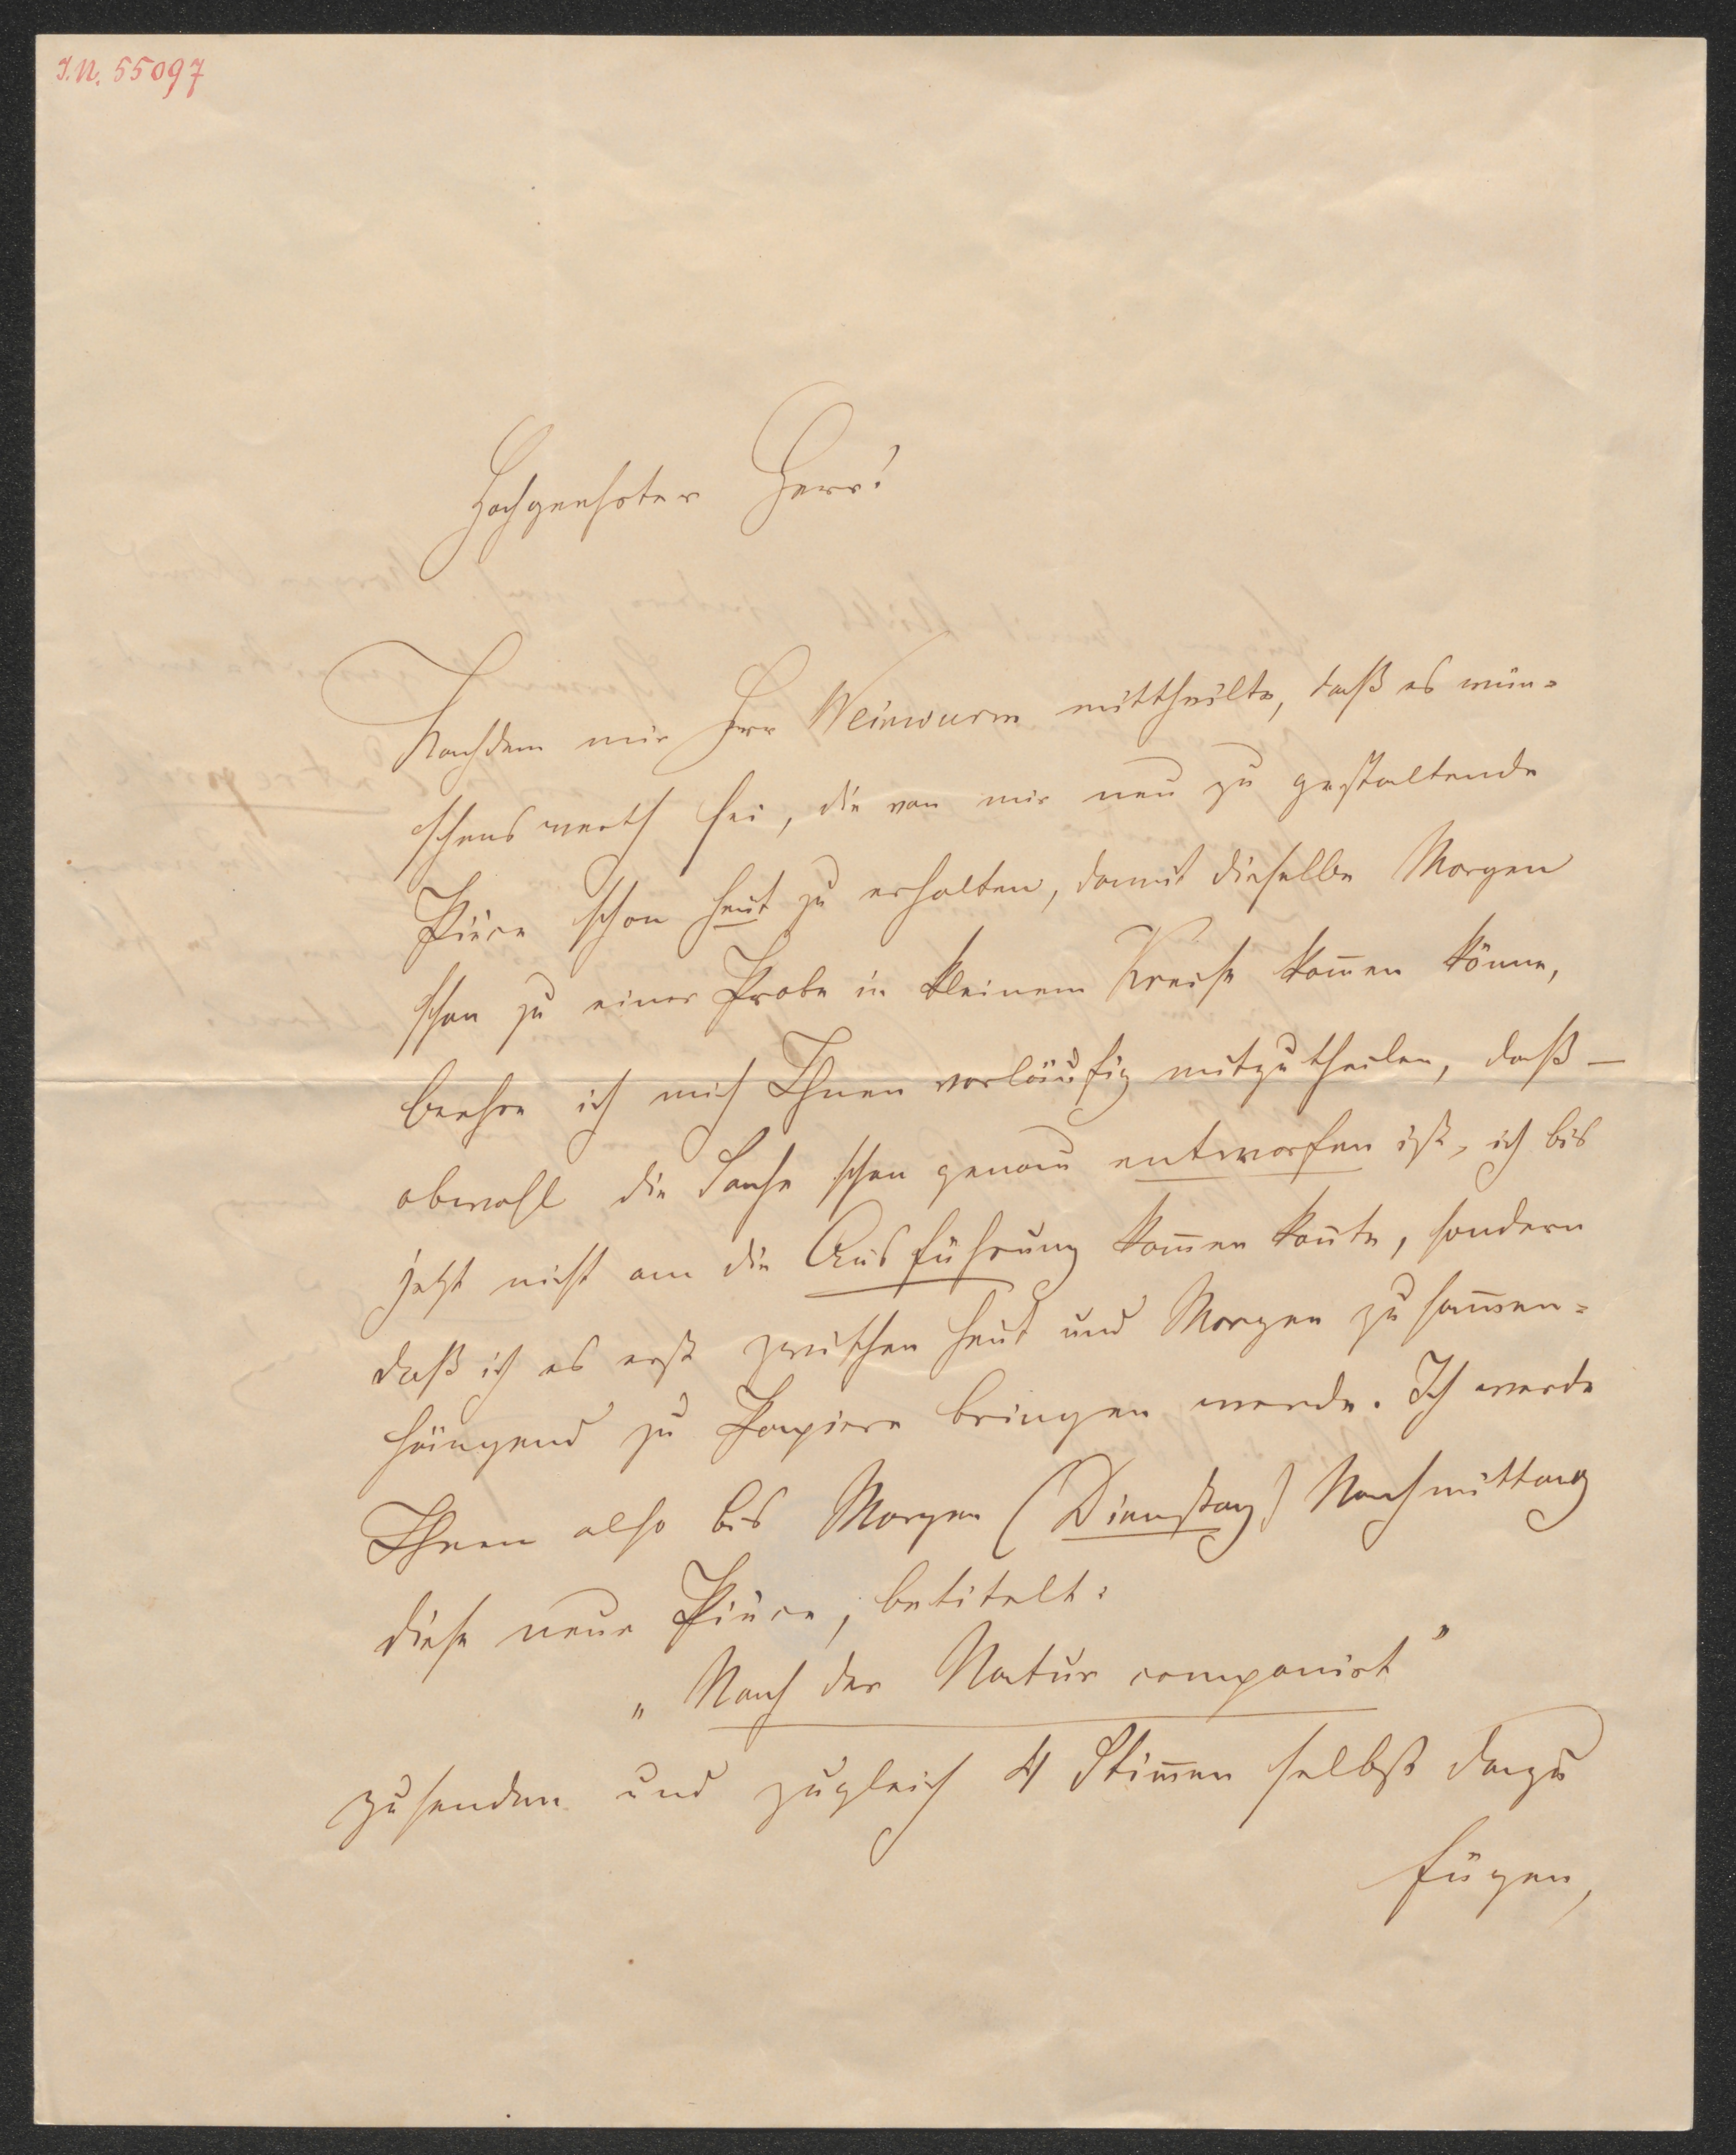 I.N. 55097
Hochgeehrter Herr!
Nachdem mir Herr Weinwurm mittheilte, daß es wün=
schenswerth sei, die von mir neu zu gestaltende
Pièce schon heut zu erhalten, damit dieselbe Morgen
schon zu einer Probe in kleinem Kreise kom̄en könne,
beehre ich mich Ihnen vorläufig mitzutheilen, daß —
obwohl die Sache schon genau entworfen ist, ich bis
jetzt nicht an die Ausführung kom̄en kon̄te, sondern
daß ich es erst zwischen heut und Morgen zusam̄en=
hängend zu Papiere bringen werde. Ich werde
Ihnen also bis Morgen (Dienstag) Nachmittag
diese neue Pièce, betitelt:
„Nach der Natur componirt"
zusenden und zugleich 4 Stim̄en selbst dazu
fügen,